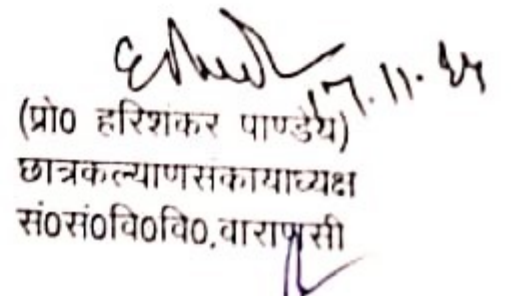 17.11.25
(प्रो0 हरिशंकर पाण्डेय)
छात्रकल्याणसंकायाध्यक्ष
सं0सं0वि0वि0,वाराणसी